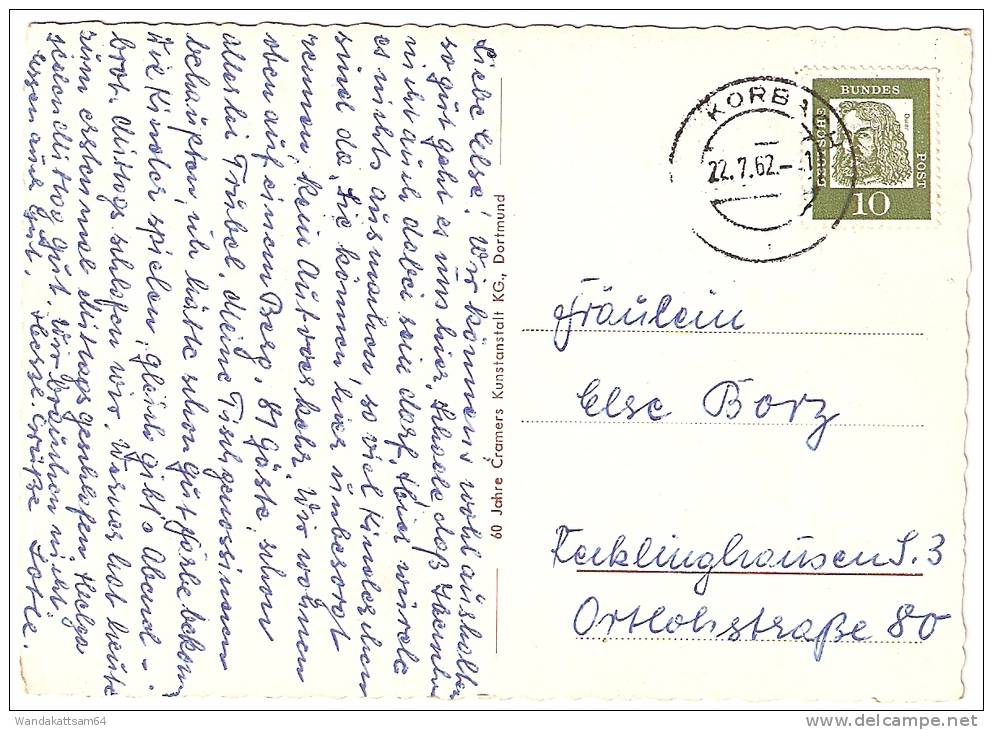 Liebe Else! Wir können's wohl aushalten
so gut geht es uns hier. Schade daß Heinz
nicht auch dabei sein darf. Hier würde
es nichts ausmachen, so viel Kinderchen
sind da. Sie können hier unbesorgt
rennen, kein Autoverkehr. Wir wohnen
oben auf einem Berg. 81 Gäste, schon
allerlei Trubel. Meine Tischgenossinnen
behaupten, ich hätte schon gut Farbe bekomm
Die Kinder spielen, gleich gibt's Abend-
brot. Mittags schlafen wir. Werner hat heute
zum ersten mal Mittags geschlafen, Helga
jeden Mittag gut. Wir brauchen nicht
Essen auch gut. Herzl. Grüße Lotte.
60 Jahre Cramers Kunstanstalt KG., Dortmund
KORBA
22.7.62.-
DEUTSCHE
BUNDES
POST
Dürer
10
Fräulein
Else Borz
Recklinghausen S. 3
Ortlohstraße 80
Wandakattsam64
delcampe.net